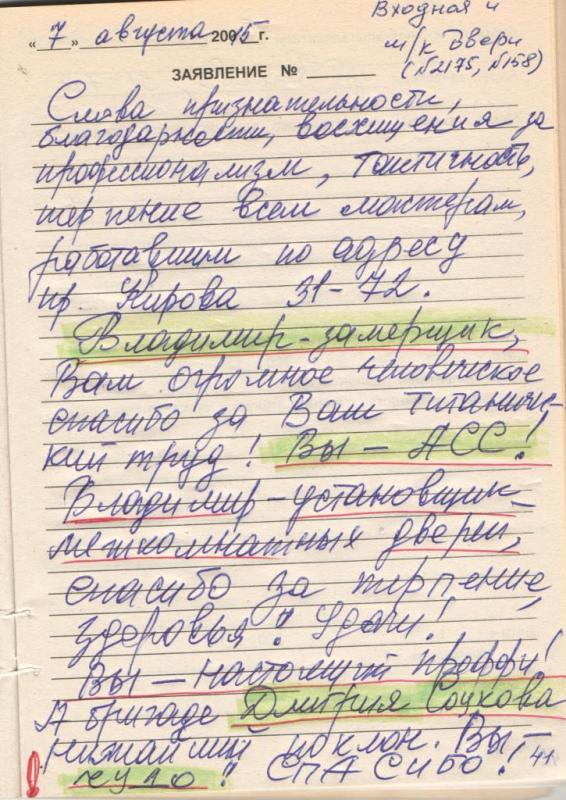 Входная и
м/к двери
(№2175, №158)
"7" августа 2005 г.
ЗАЯВЛЕНИЕ №
Слова признательности,
благодарности, восхищения за
профессионализм, тактичность,
терпение всем мастерам,
работавшим по адресу
пр. Кирова 31-72.
Владимир-замерщик,
Вам огромное человеческое
спасибо за Ваш титаничес-
кий труд! Вы - АСС!
Владимир-установщик
межкомнатных дверей,
спасибо за терпение,
здоровья! Удачи!
Вы - настоящий проффи!
А бригаде Дмитрия
нижайший поклон. Вы -
чудо! СПАСИБО! 41